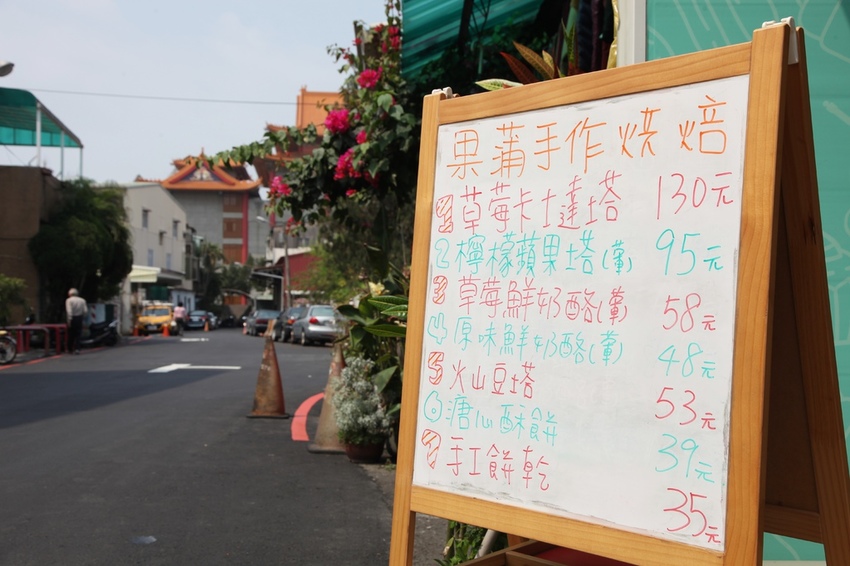 果蒲手作烘焙
1 草莓卡士達塔 130元
2 檸檬蘋果塔(葷) 95元
3 草莓鮮奶酪(葷) 58元
4 原味鮮奶酪(葷) 48元
5 火山豆塔 53元
6 溏心酥餅 39元
7 手工餅乾 35元